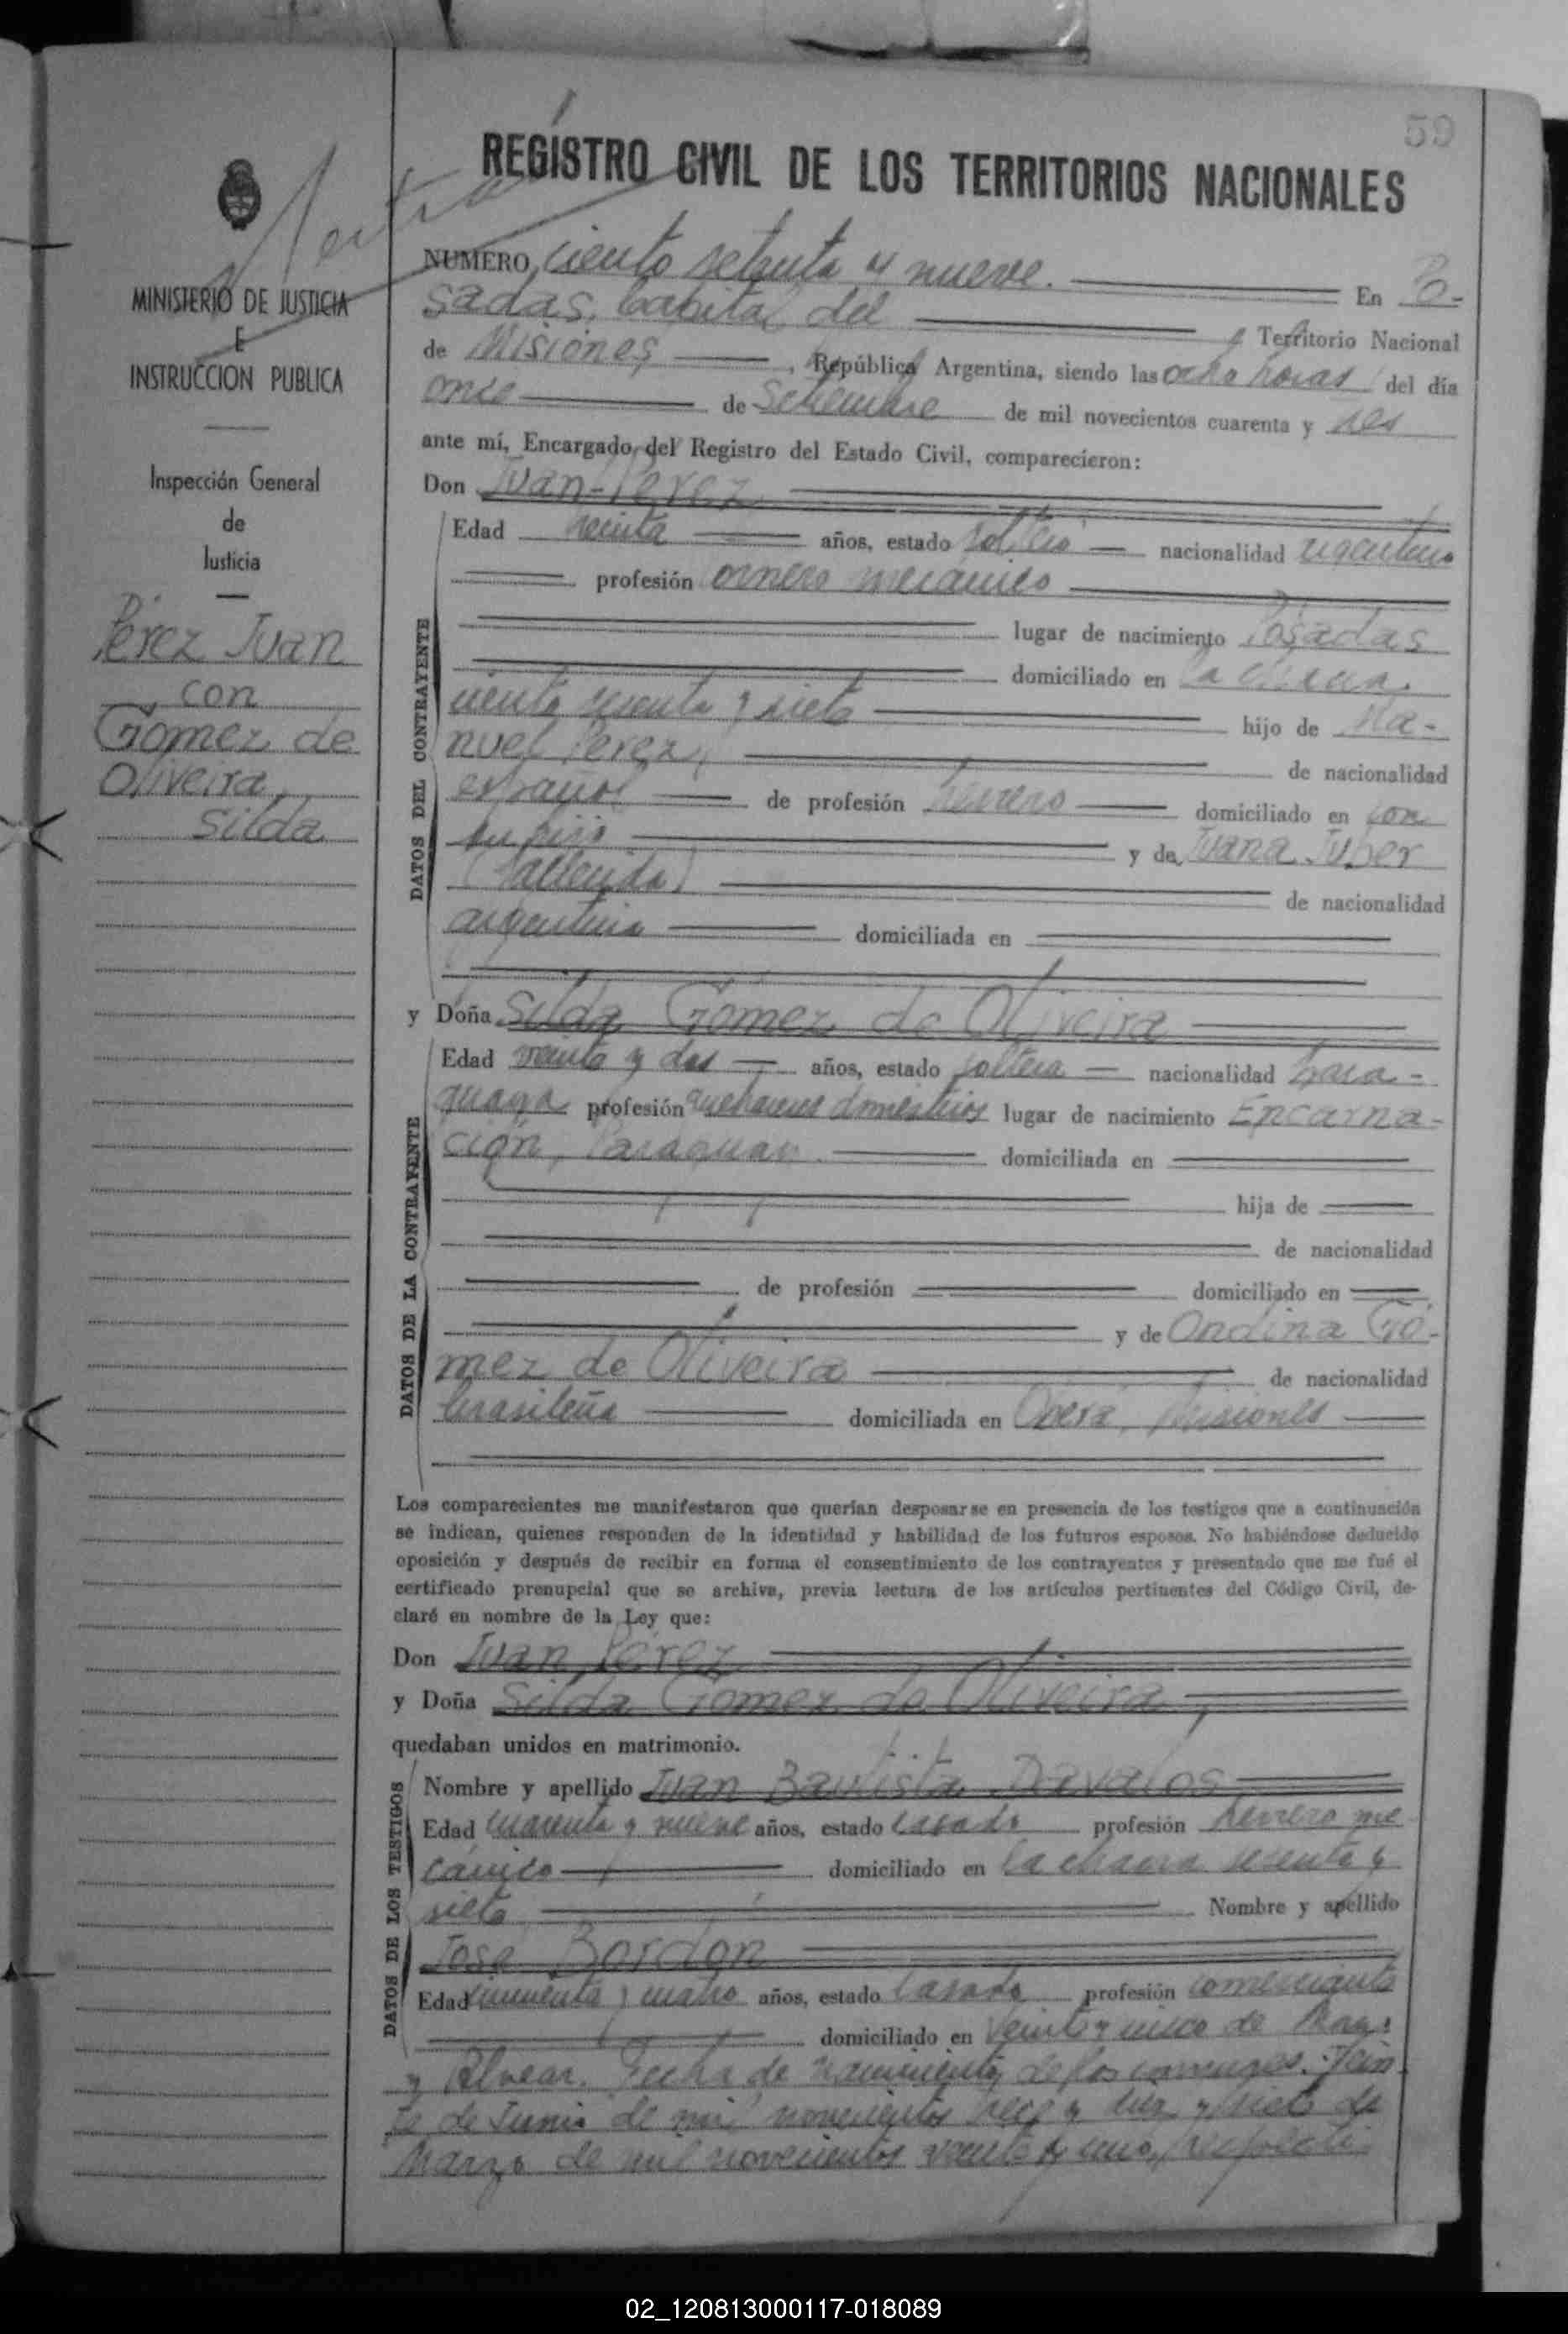 59
REGISTRO CIVIL DE LOS TERRITORIOS NACIONALES
MINISTERIO DE JUSTICIA
E
INSTRUCCION PUBLICA
Inspección General
de
Justicia
Pérez Juan
con
Gómez de
Oliveira,
Silda
NUMERO ciento setenta y nueve. En Po-
sadas, Capital del Territorio Nacional
de Misiones, República Argentina, siendo las ocho horas del día
once de Setiembre de mil novecientos cuarenta y tres
ante mí, Encargado del Registro del Estado Civil, comparecieron:
Don Juan Perez
DATOS DEL CONTRAYENTE
Edad treinta años, estado soltero nacionalidad argentino
profesión tornero mecánico
lugar de nacimiento Posadas
domiciliado en la chacra
ciento sesenta y siete hijo de Ma-
nuel Perez, de nacionalidad
español de profesión herrero domiciliado en con
su hijo y de Juana Juber
(fallecida) de nacionalidad
argentina domiciliada en
y Doña Silda Gómez de Oliveira
DATOS DE LA CONTRAYENTE
Edad veinte y dos años, estado soltera nacionalidad para-
guaya profesión quehaceres domésticos lugar de nacimiento Encarna-
ción, Paraguay. domiciliada en
hija de
de nacionalidad
de profesión domiciliado en
y de Ondina Gó-
mez de Oliveira de nacionalidad
brasileña domiciliada en Oberá, Misiones
Los comparecientes me manifestaron que querían desposarse en presencia de los testigos que a continuación
se indican, quienes responden de la identidad y habilidad de los futuros esposos. No habiéndose deducido
oposición y después de recibir en forma el consentimiento de los contrayentes y presentado que me fué el
certificado prenupcial que se archiva, previa lectura de los artículos pertinentes del Código Civil, de-
claré en nombre de la Ley que:
Don Juan Pérez
y Doña Silda Gómez de Oliveira,
quedaban unidos en matrimonio.
DATOS DE LOS TESTIGOS
Nombre y apellido Juan Bautista Davalos
Edad cuarenta y nueve años, estado casado profesión herrero me
cánico domiciliado en la chacra sesenta y
siete Nombre y apellido
José Bordon
Edad cincuenta y cuatro años, estado casado profesión comerciante
domiciliado en veinte y cinco de Mayo
y Alvear. Fecha de nacimiento de los conyuges: Vein
te de Junio de mil novecientos trece y diez y siete de
Marzo de mil novecientos veinte y uno, respecti-
02_120813000117-018089